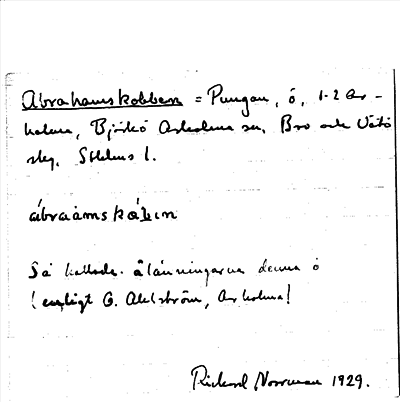 Abrahamskobben = Pungan, ö, 1-2 Ar-
holma, Björkö Arholma sn, Bro och Vätö
skg, Sthlms l.
ábraàmskåb̥ɩn
Så kallade ålänningarna denna ö
(enligt G. Ahlström, Arholma)
Rickard Norrman 1929.